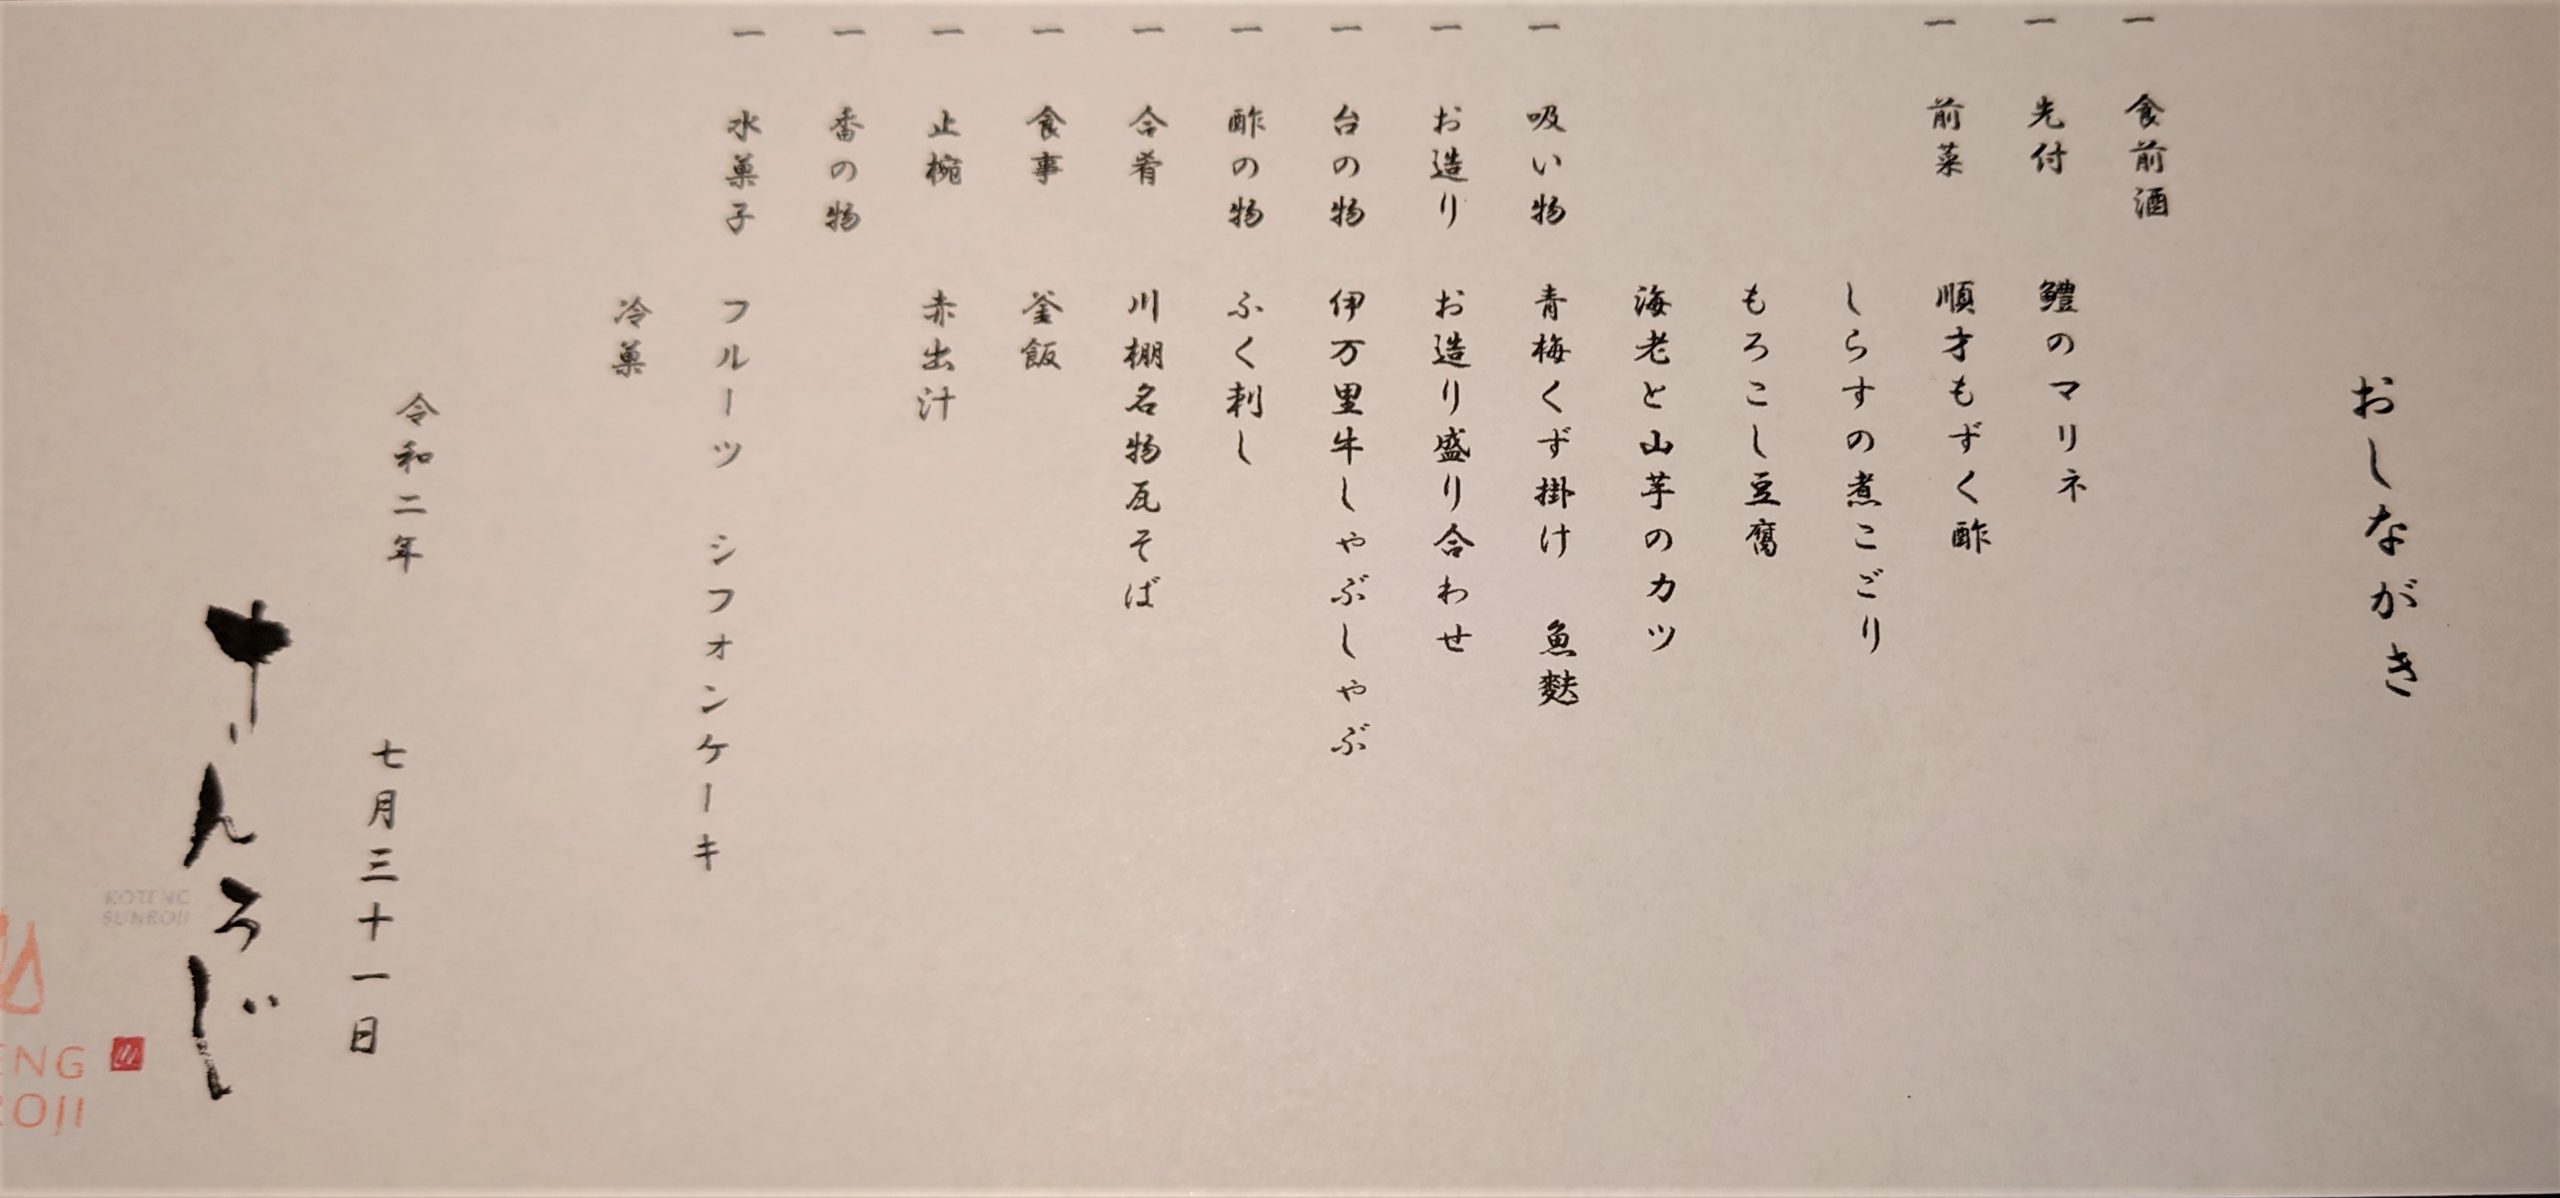 おしながき
一 食前酒
一 先付 鱧のマリネ
一 前菜 順才もずく酢
しらすの煮こごり
もろこし豆腐
海老と山芋のカツ
一 吸い物 青梅くず掛け 魚麩
一 お造り お造り盛り合わせ
一 台の物 伊万里牛しゃぶしゃぶ
一 酢の物 ふく刺し
一 合肴 川棚名物瓦そば
一 食事 釜飯
一 止椀 赤出汁
一 香の物
一 水菓子 フルーツ シフォンケーキ
冷菓
令和二年 七月三十一日
さんろじ
KOTENG
SUNROJI
ENG
ROJI